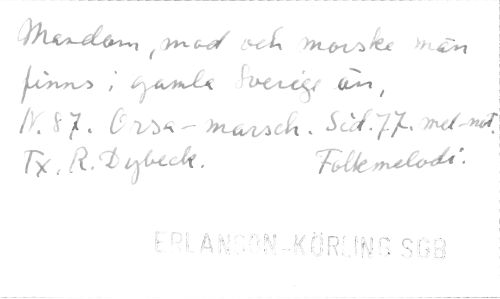 Mandom, mod och morske män
finns i gamla Sverige än,
N. 87. Orsa-marsch. Sid. 77. mel-not
Tx. R. Dybeck. Folkmelodi.
ERLANSON-KÖRLING SGB